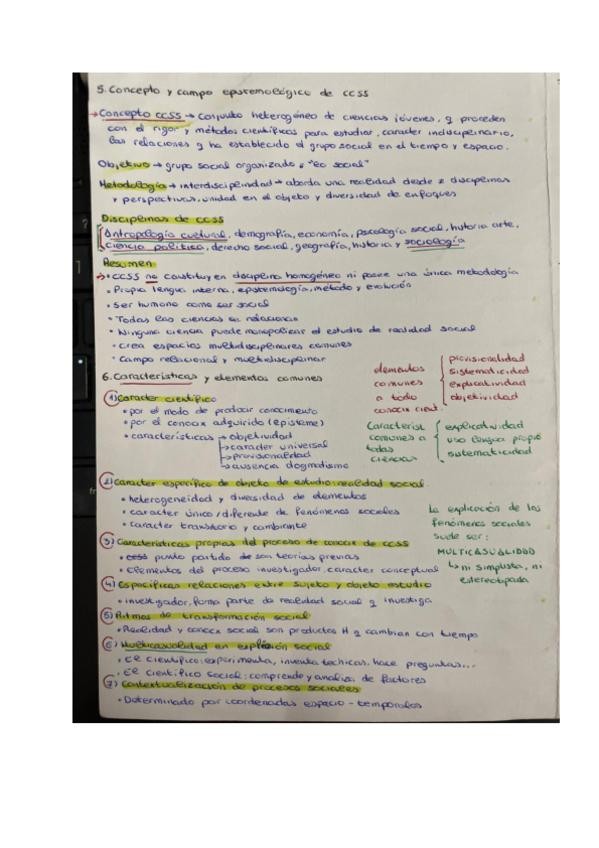 5. Concepto y campo epistemológico de CCSS
→ Concepto CCSS → conjunto heterogéneo de ciencias jóvenes, q proceden
con el rigor y métodos científicos para estudiar, caracter indisciplinario,
las relaciones q ha establecido el grupo social en el tiempo y espacio.
Objetivo → grupo social organizado "eo social"
Metodología → interdisciplinidad → aborda una realidad desde ≠ disciplinas
y perspectivas, unidad en el objeto y diversidad de enfoques
Disciplinas de CCSS
Antropología cultural, demografía, economía, psicología social, historia arte,
ciencia política, derecho social, geografía, historia y sociología
Resumen
• CCSS no constituyen disciplina homogéneo ni posee una única metodología
• Propia lengua interna, epistemología, método y evolución
• Ser humano como ser social
• Todas las ciencias se relacionan
• Ninguna ciencia puede monopolizar el estudio de realidad social
• Crea espacios multidisciplinares comunes
• Campo relacional y multidisciplinar
6. Características y elementos comunes
elementos comunes a todo conocix cient.
provisionalidad
sistematicidad
explicatividad
objetividad
1) Caracter científico
• por el modo de producir conocimiento
• por el conocix adquirido (episteme)
• características → objetividad
→ caracter universal
→ provisionalidad
→ ausencia dogmatismo
Caracterist comunes a todas ciencias
explicatividad
uso lengua propio
sistematicidad
2) Caracter específico de objeto de estudio: realidad social
• heterogeneidad y diversidad de elementos
• caracter único/diferente de fenómenos sociales
• caracter transitorio y cambiante
3) Características propias del proceso de conocix de CCSS
• punto partido son teorías previas
• Elementos del proceso investigador, caracter conceptual
La explicación de los
fenómenos sociales
suele ser:
MULTICASUALIDAD
↳ ni simplista, ni
estereotipada
4) Específicas relaciones entre sujeto y objeto estudio
• investigador, forma parte de realidad social q investiga
5) Ritmos de transformación social
• Realidad y conocix social son productos H q cambian con tiempo
6) Multicasualidad en explixión social
• El científico: experimenta, inventa tecnicas, hace preguntas...
• El científico social: comprende y analiza de factores
7) Contextualización de procesos sociales
• Determinado por coordenadas espacio - temporales